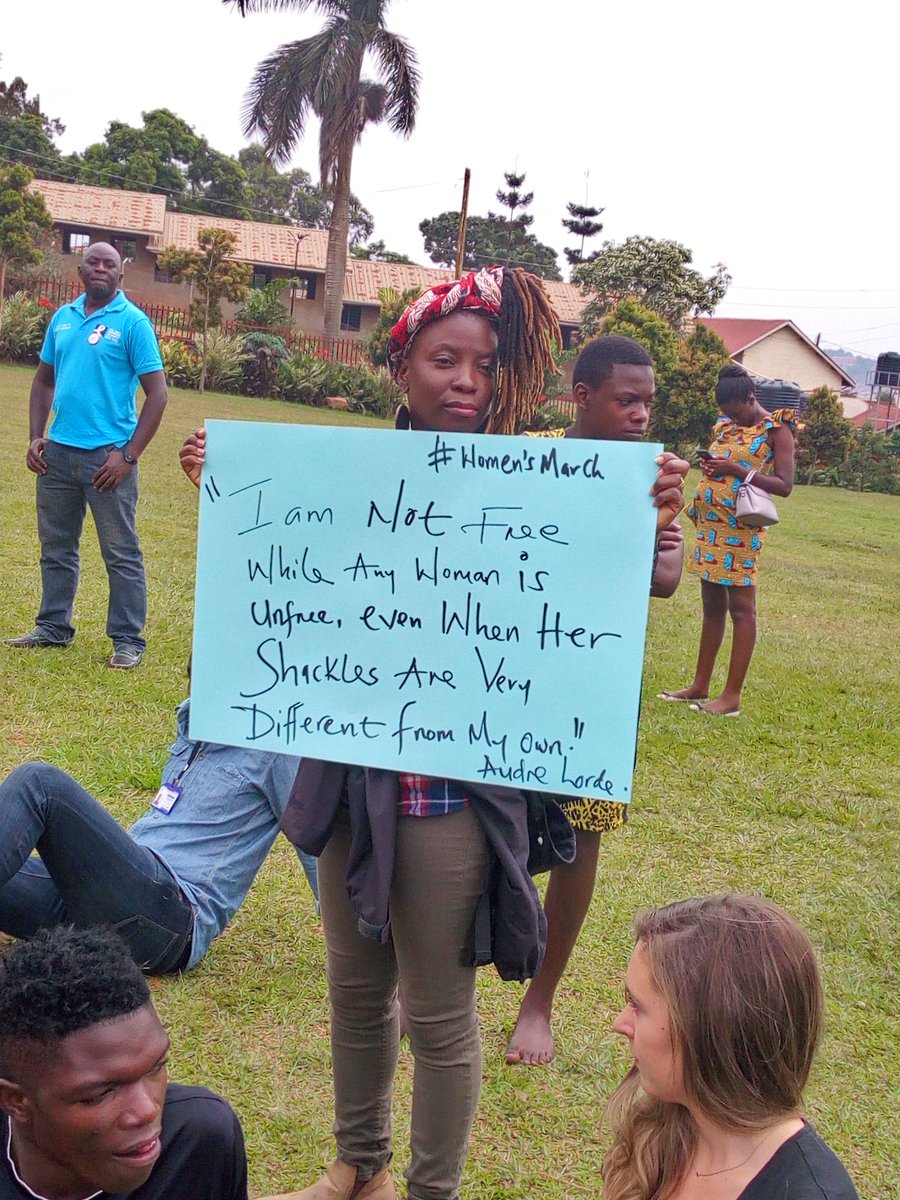 #Women's March
"I am Not Free
While Any Woman is
Unfree, even When Her
Shackles Are Very
Different from My Own."
Audre Lorde.